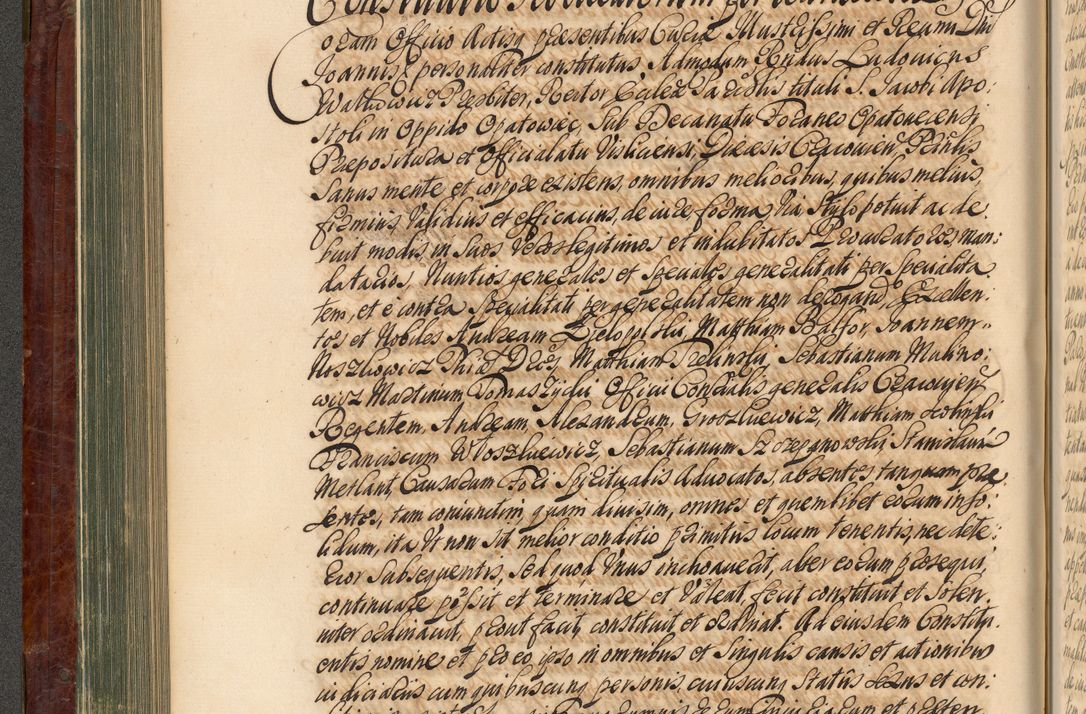 Coram Officio Actisq presentibus Curiæ Illustrissimi et Rsmi Dni
Joannis personaliter constitutus Admodum Rndus Ludovicus
Wathowicz Præsbiter, Rector Eccles Parochlis tituli S. Jacobi Apo:
stoli in Oppido Opatowiec, sub Decanatu Foraneo Opatovecensi
Præpositura et Officialatu Visliciensi, Diæcesis Cracovien Præntis
sanus mente et corpore existens, omnibus melioribus, quibus melius,
firmius, Validius et efficacius, de iure, forma, Via, Stylo potuit ac de
buit modis, in suos Veros legitimos et indubitatos Procuratores, Man:
datarios, Nuntios generales et speciales generalitati per Specialita
tem, et e contra Specialitati per generalitatem non derogari, Excellen:
tes et Nobiles Andream Bielopolski, Matthiam Balsor, Joannem
Noszkowicz Phiæ Dres, Matthiam Sebastianum Malino:
wicz Martinum Officii Consulis generalis Cracovien
Regentem, Andream Alexandrum, Groszkiewicz, Matthiam
Franciscum Woszkiewicz, Sebastianum Szczepanowski, Stanislaum
Merlant, Causarum Fori Spiritualis Advocatos, absentes tanquam præ
sentes, tam coniunctim, quam divisim, omnes et quemlibet eorum inso:
lidum, ita Ut non sit melior conditio primitus locum tenentis, nec dete:
rior subsequentis, sed quod Unus inchoaverit, alter eorum prosequi,
continuare possit et terminare et Valeat, fecit constituit et solen:
niter ordinavit, prout facit, constituit et ordinat. Ad eiusdem Constitu:
entis nomine et pro eo, ipso in omnibus et singulis causis et actionibus
iudiciariis cum quibuscunq personis, cuiuscunq Status sexus et con: